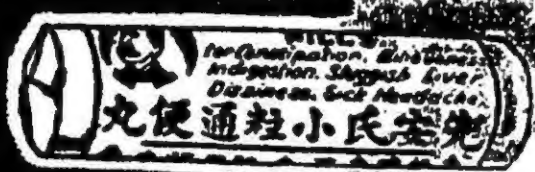 for Constipation, Biliousness
Indigestion, Sluggish Liver
Dizziness, Sick Headache,
兜安氏小粒通便丸